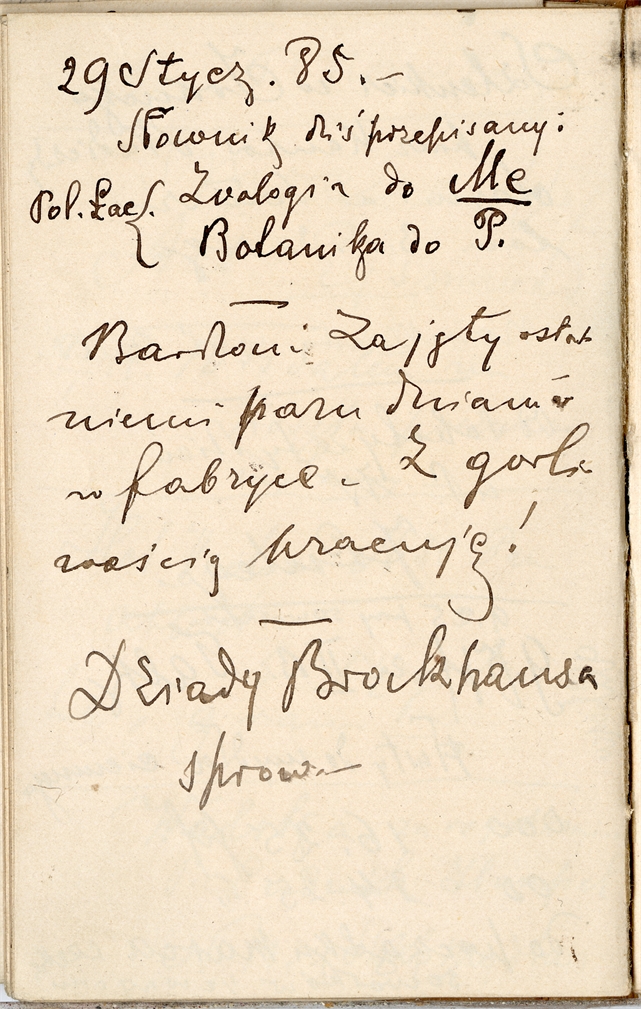 29 Stycz. 85.—
Słownik dziś przepisany:
Pol. Łac. { Zoologia do Me
Botanika do P.
Bardzom zajęty ostat
niemi paru dniami
w fabryce. Z gorli
wością pracuję!
Dziady Brockhausa
sprow.—